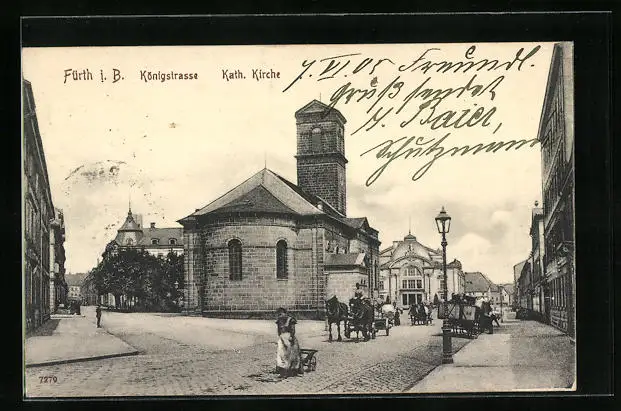 Fürth i. B. Königstrasse Kath. Kirche
7. VI. 05 Freundl.
Gruß sendet
H. Baier,
Schutzmann
7270